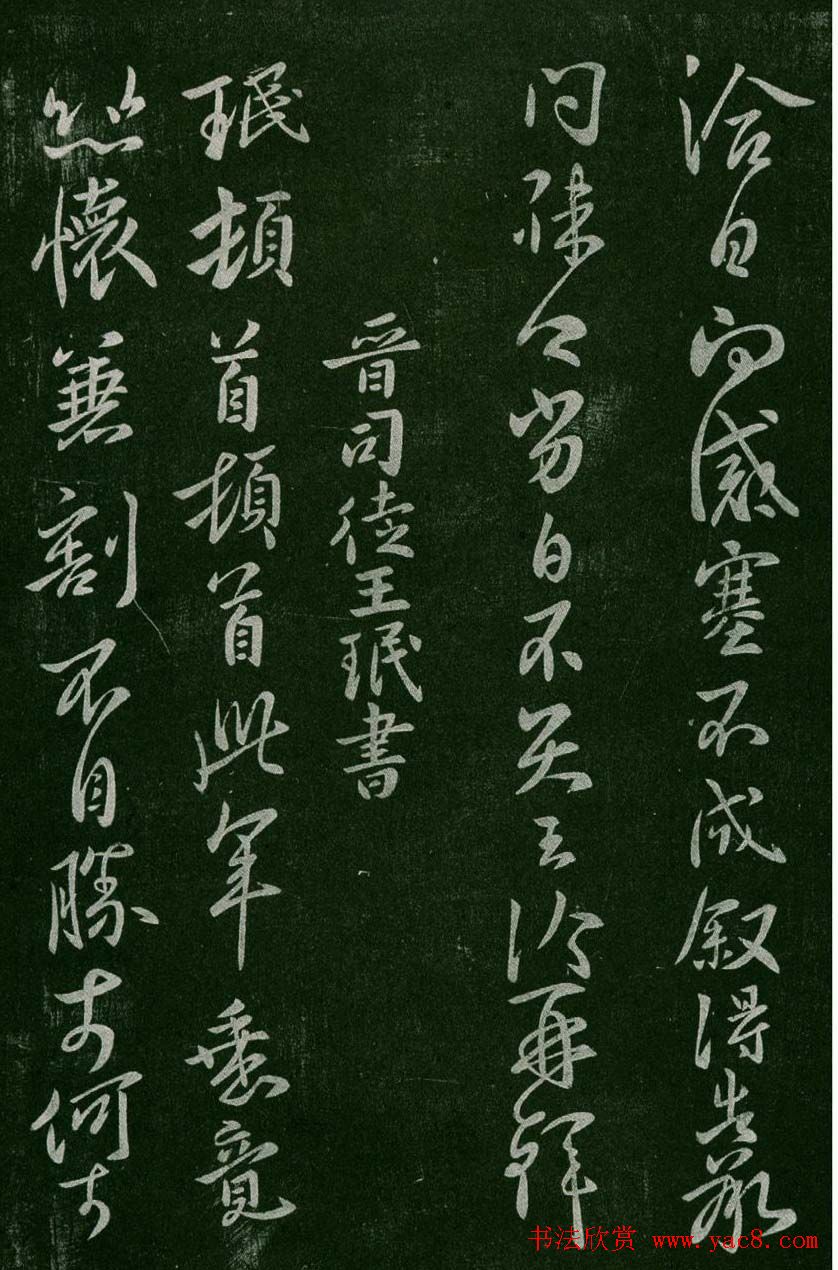 洽白向感塞不成叙得告承
問乏劣白不具王洽再拜
晉司徒王珉書
珉頓首頓首此年垂竟
悲懷兼割不自勝奈何奈
书法欣赏 www.yac8.com